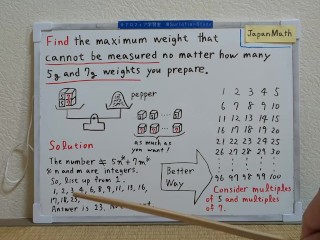 JapanMath
Find the maximum weight that
cannot be measured no matter how many
5g and 7g weights you prepare.
pepper
as much as
you want!
Solution
The number ≒ 5n + 7m
n and m are integers.
So, list up from 1.
1, 2, 3, 4, 6, 8, 9, 11, 13, 16,
17, 18, 23,
Answer is 23.
Better
Way
1 2 3 4 5
6 7 8 9 10
11 12 13 14 15
16 17 18 19 20
21 22 23 24 25
26 27 28 29 30
96 97 98 99 100
Consider multiples
of 5 and multiples
of 7.